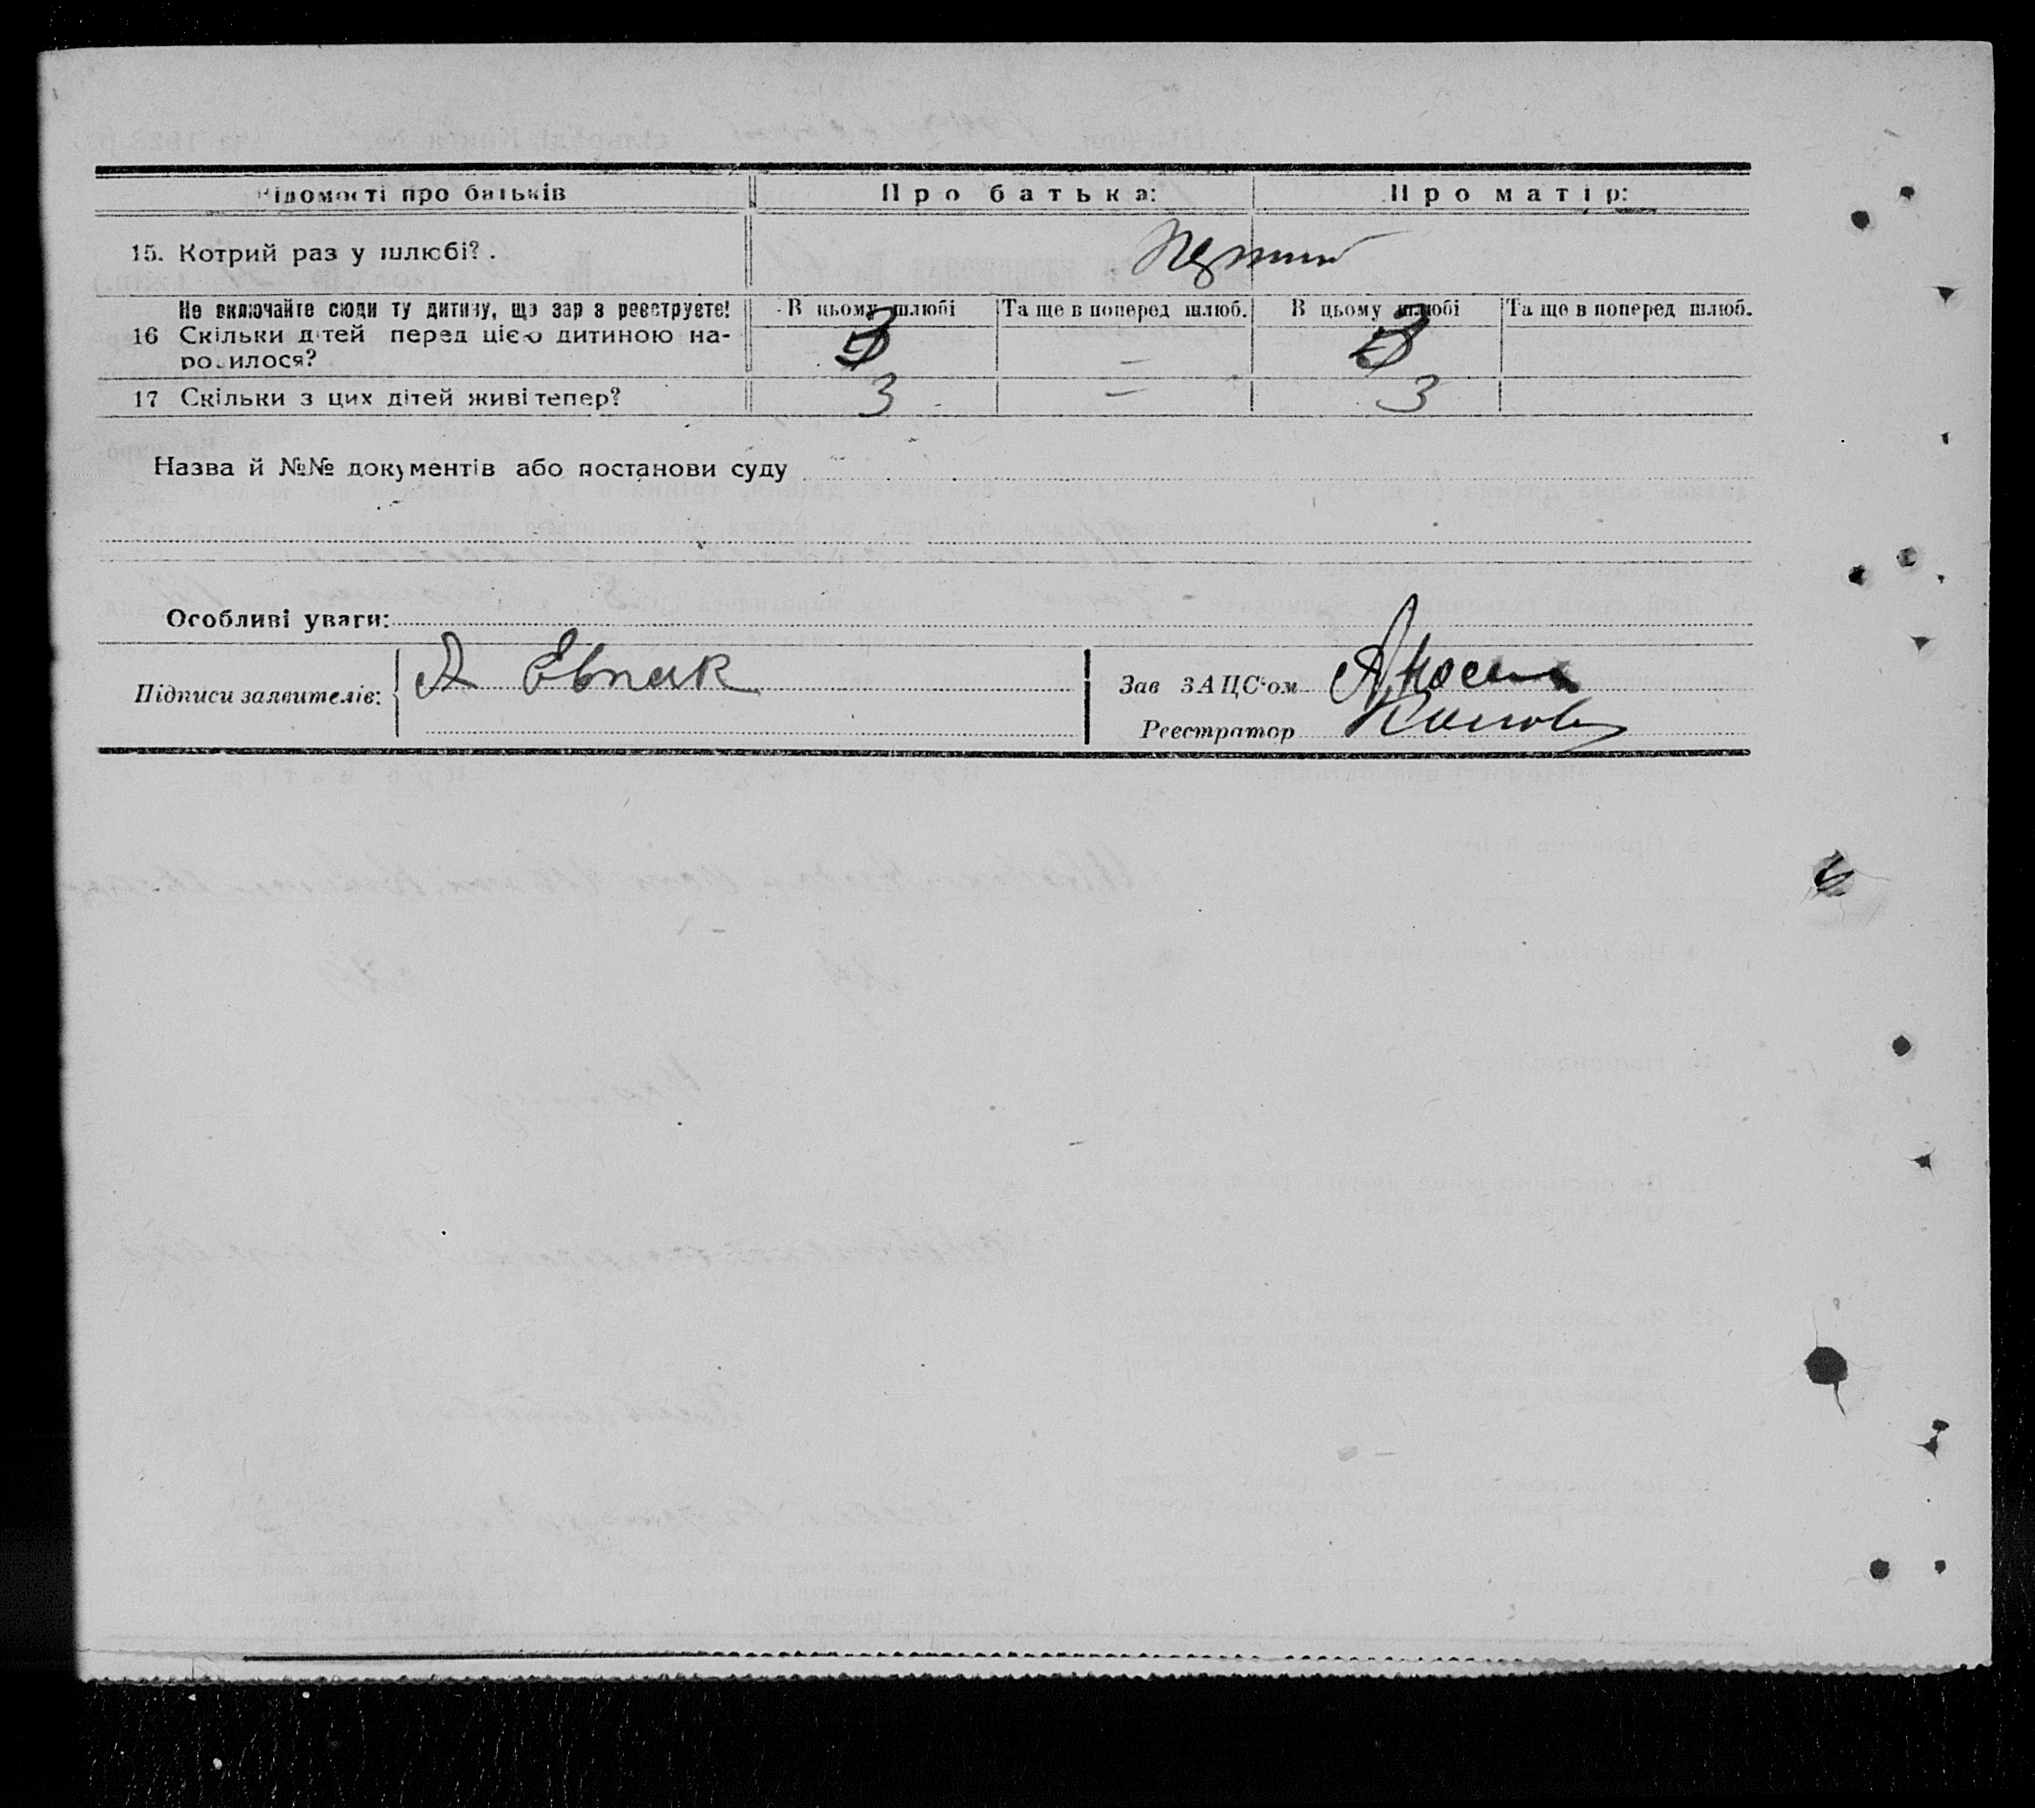 Відомості про батьків Про батька: Про матір:
15. Котрий раз у шлюбі? . Перший
Не включайте сюди ту дитину, що зараз реєструєте! В цьому шлюбі Та ще в поперед шлюб. В цьому шлюбі Та ще в поперед шлюб.
16 Скільки дітей перед цією дитиною на-
родилося? 3 — 3
17 Скільки з цих дітей живі тепер? 3 — 3
Назва й №№ документів або постанови суду
Особливі уваги:
Підписи заявителів: Я Евпак Зав ЗАЦС‘ом
Реєстратор